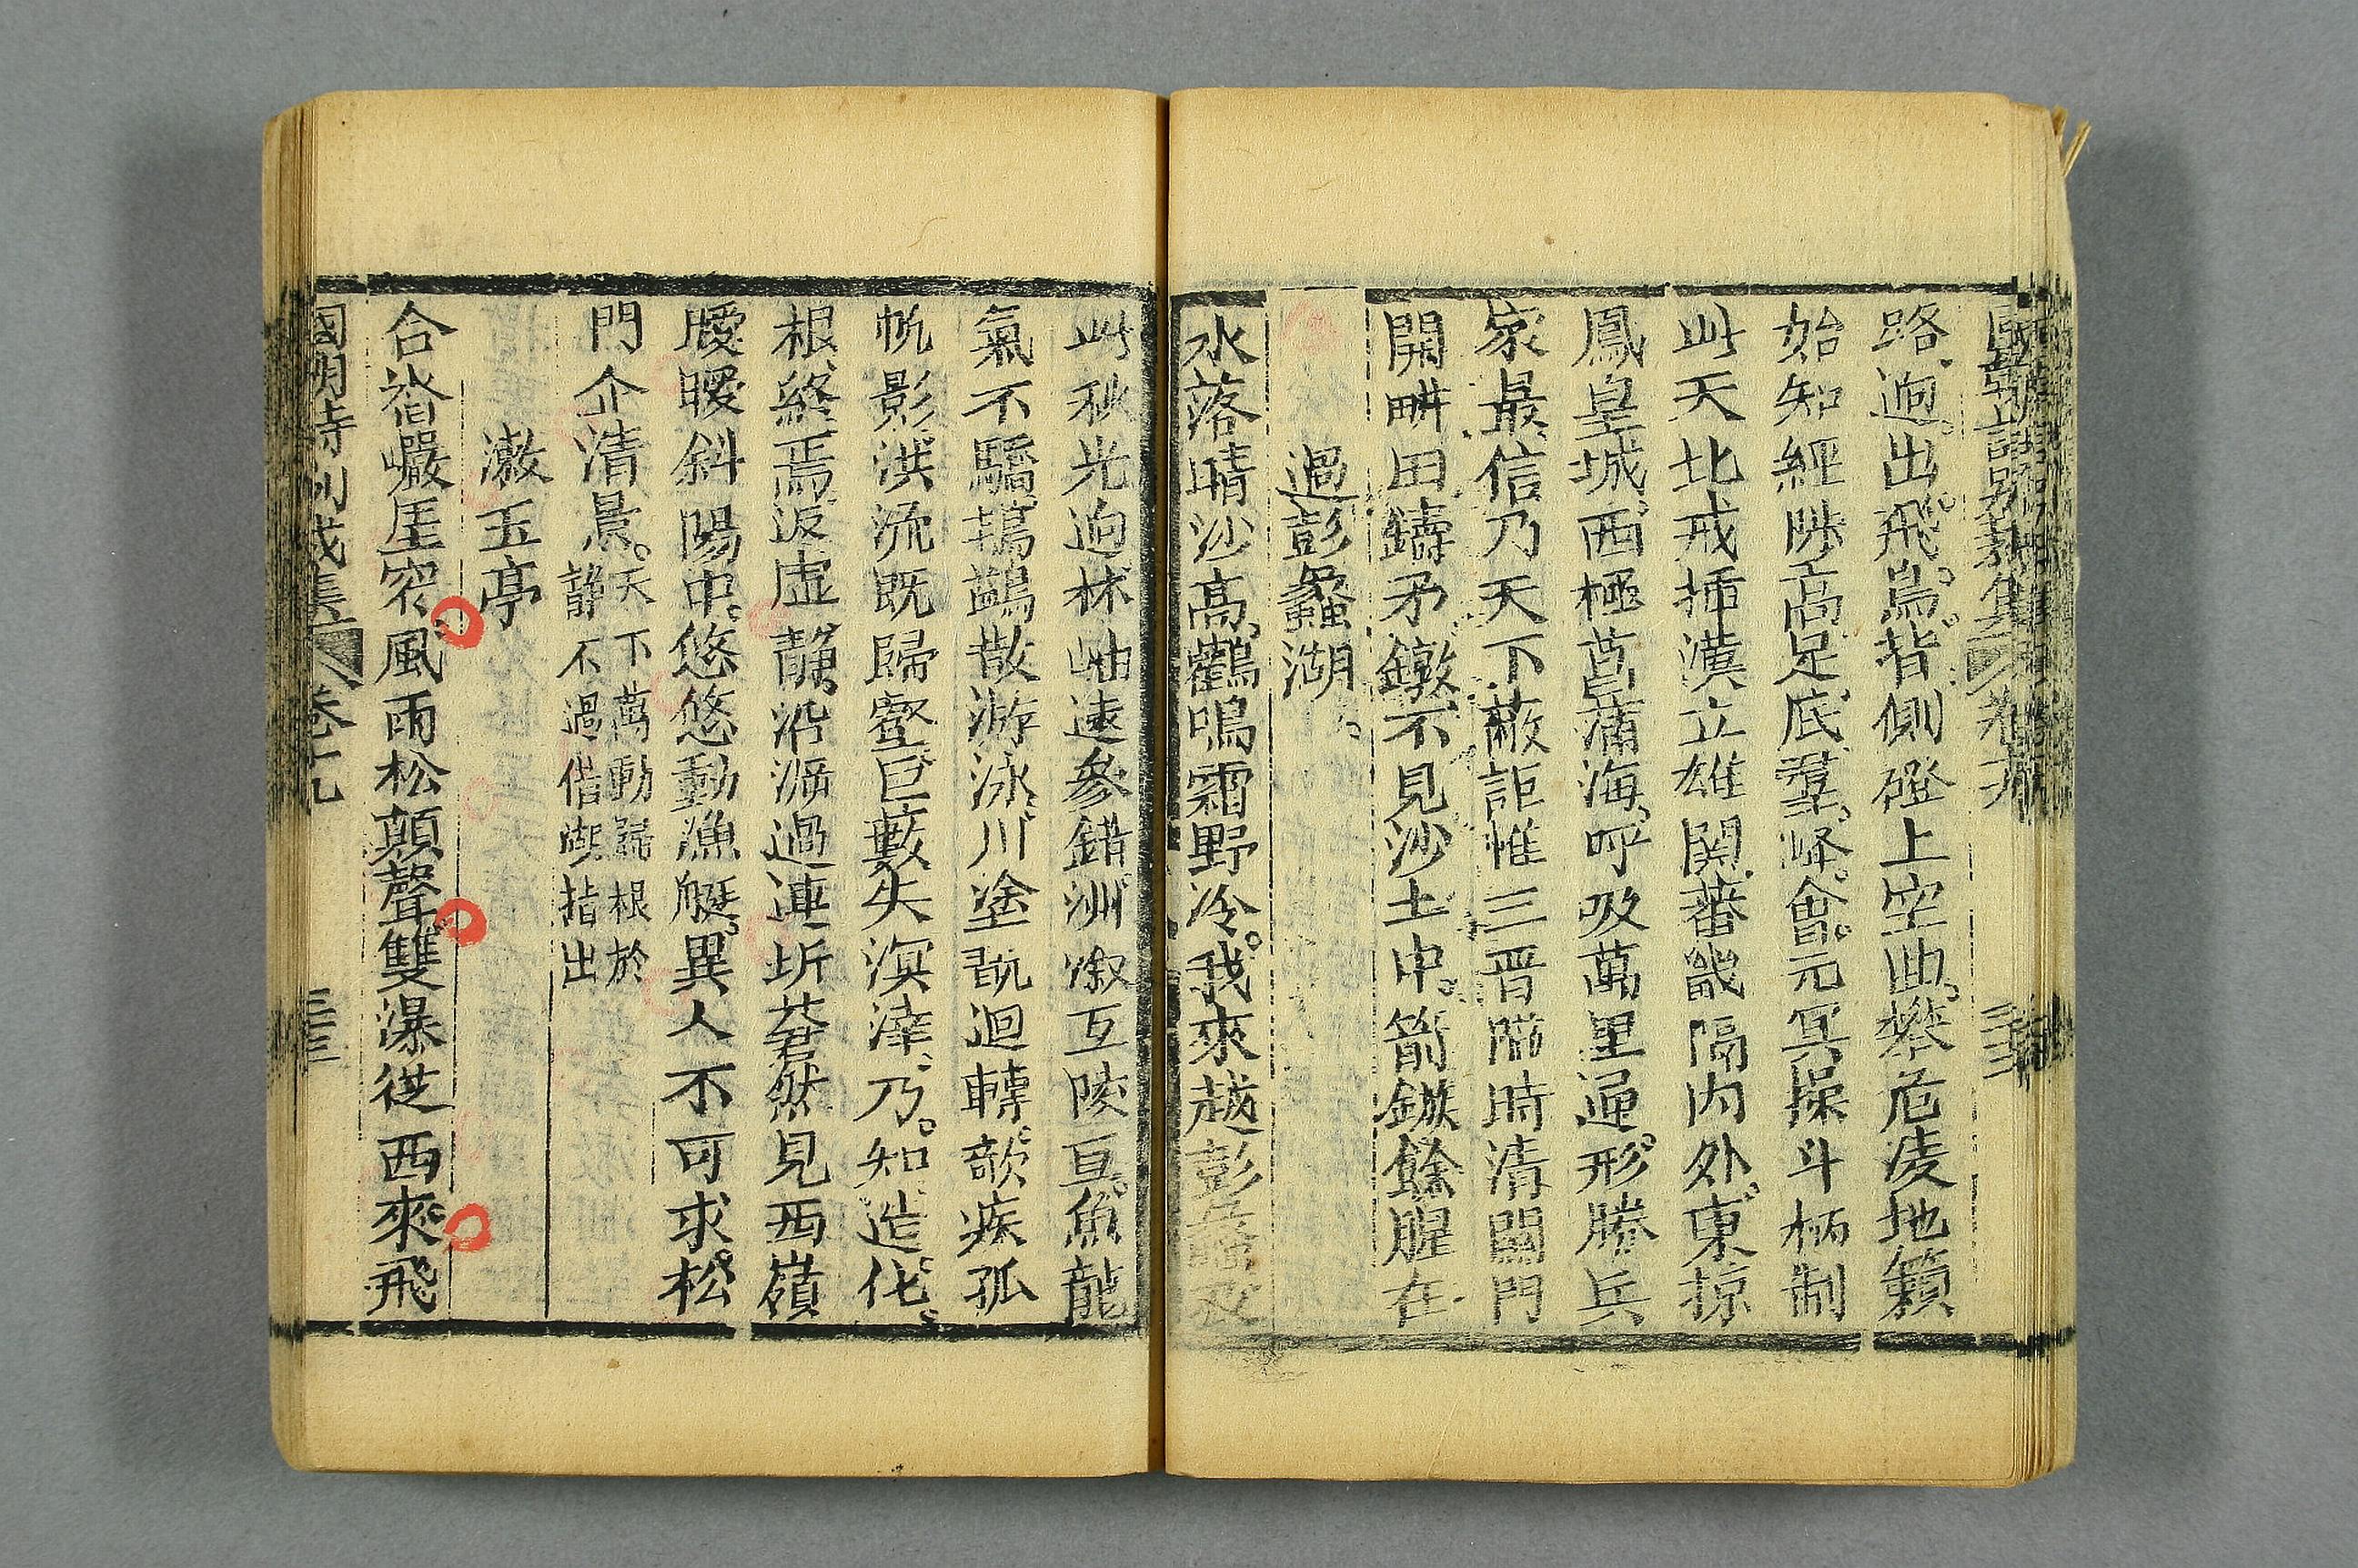 路迥出飛鳥背側磴上空曲攀危凌地籟
始知經陟高足底羣峰會元冥操斗柄制
此天北戒揷漠立雄關蕃畿隔內外東掠
鳳皇城西極菖蒲海呼吸萬里通形勝兵
家最信乃天下蔽詎惟三晉隘時清關門
開畊田鑄矛鐓不見沙土中箭鏃餘腥在
過彭蠡湖
水落晴沙高鶴鳴霜野冷我來越彭
此秋光迥林岫遠參錯洲溆互陵亘魚龍
氣不驕鴰鷁散游泳川塗旣迴轉欹疾孤
帆影洪流既歸壑巨藪失溟涬乃知造化
根終焉返虛靜沿溯過連圻蒼然見西嶺
靉曖斜陽中悠悠動漁艇異人不可求松
門企清晨天下萬動歸根於
靜不過借湖指出
漱玉亭
合沓巖厓窄風雨松顛聲雙瀑從西來飛
國朝詩別裁集 卷十九 三三